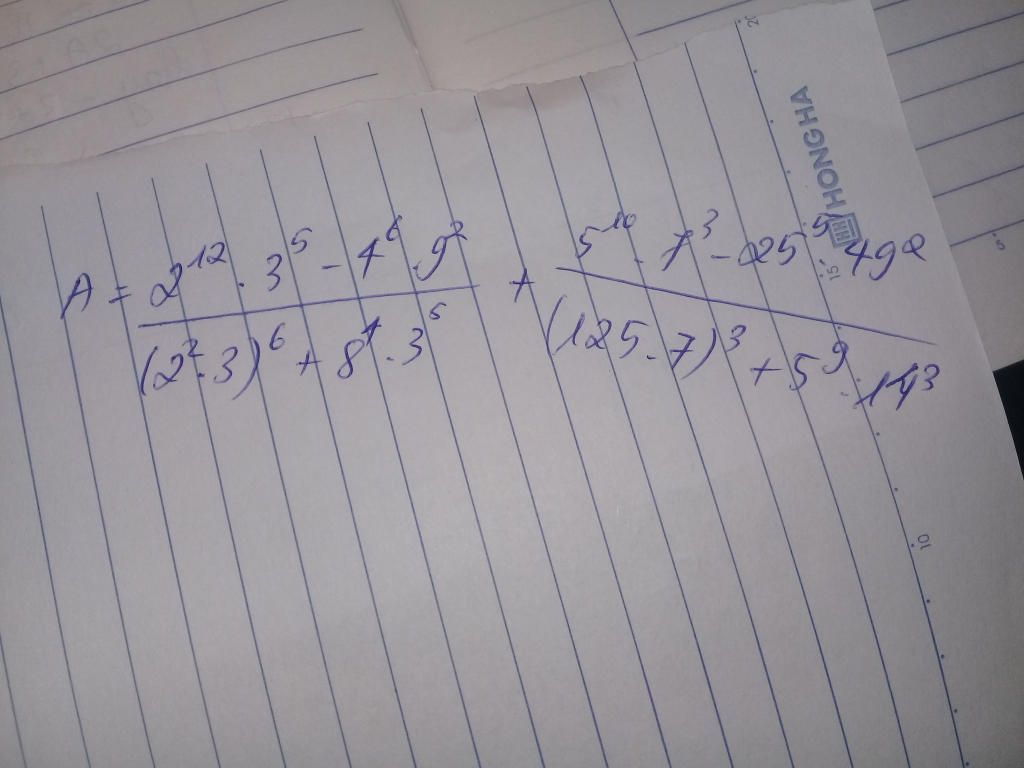 A = \frac{2^{12} . 3^5 - 4^6 . 9^2}{(2^2 . 3)^6 + 8^4 . 3^5} + \frac{5^{10} . 7^3 - 25^5 . 49^2}{(125 . 7)^3 + 5^9 . 14^3}
HONG HA
20
15
10
5